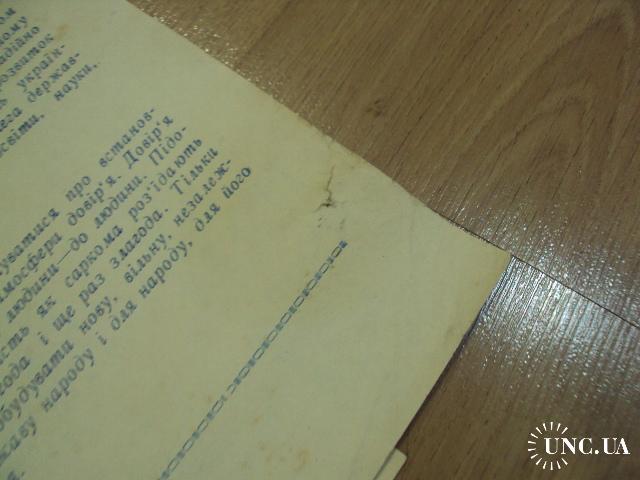 ом
ному
надійно
розвиток
ь україн-
ега держав-
освіти, науки,
уватися про встанов-
тмосфера довір'я. Довір'я
людини—до людини. Підо-
ість як саркома роз'їдають
года і ще раз злагода. Тільки
обудувати нову, вільну, незалеж-
жаву народу і для народу, для його
я.
UNC.UA